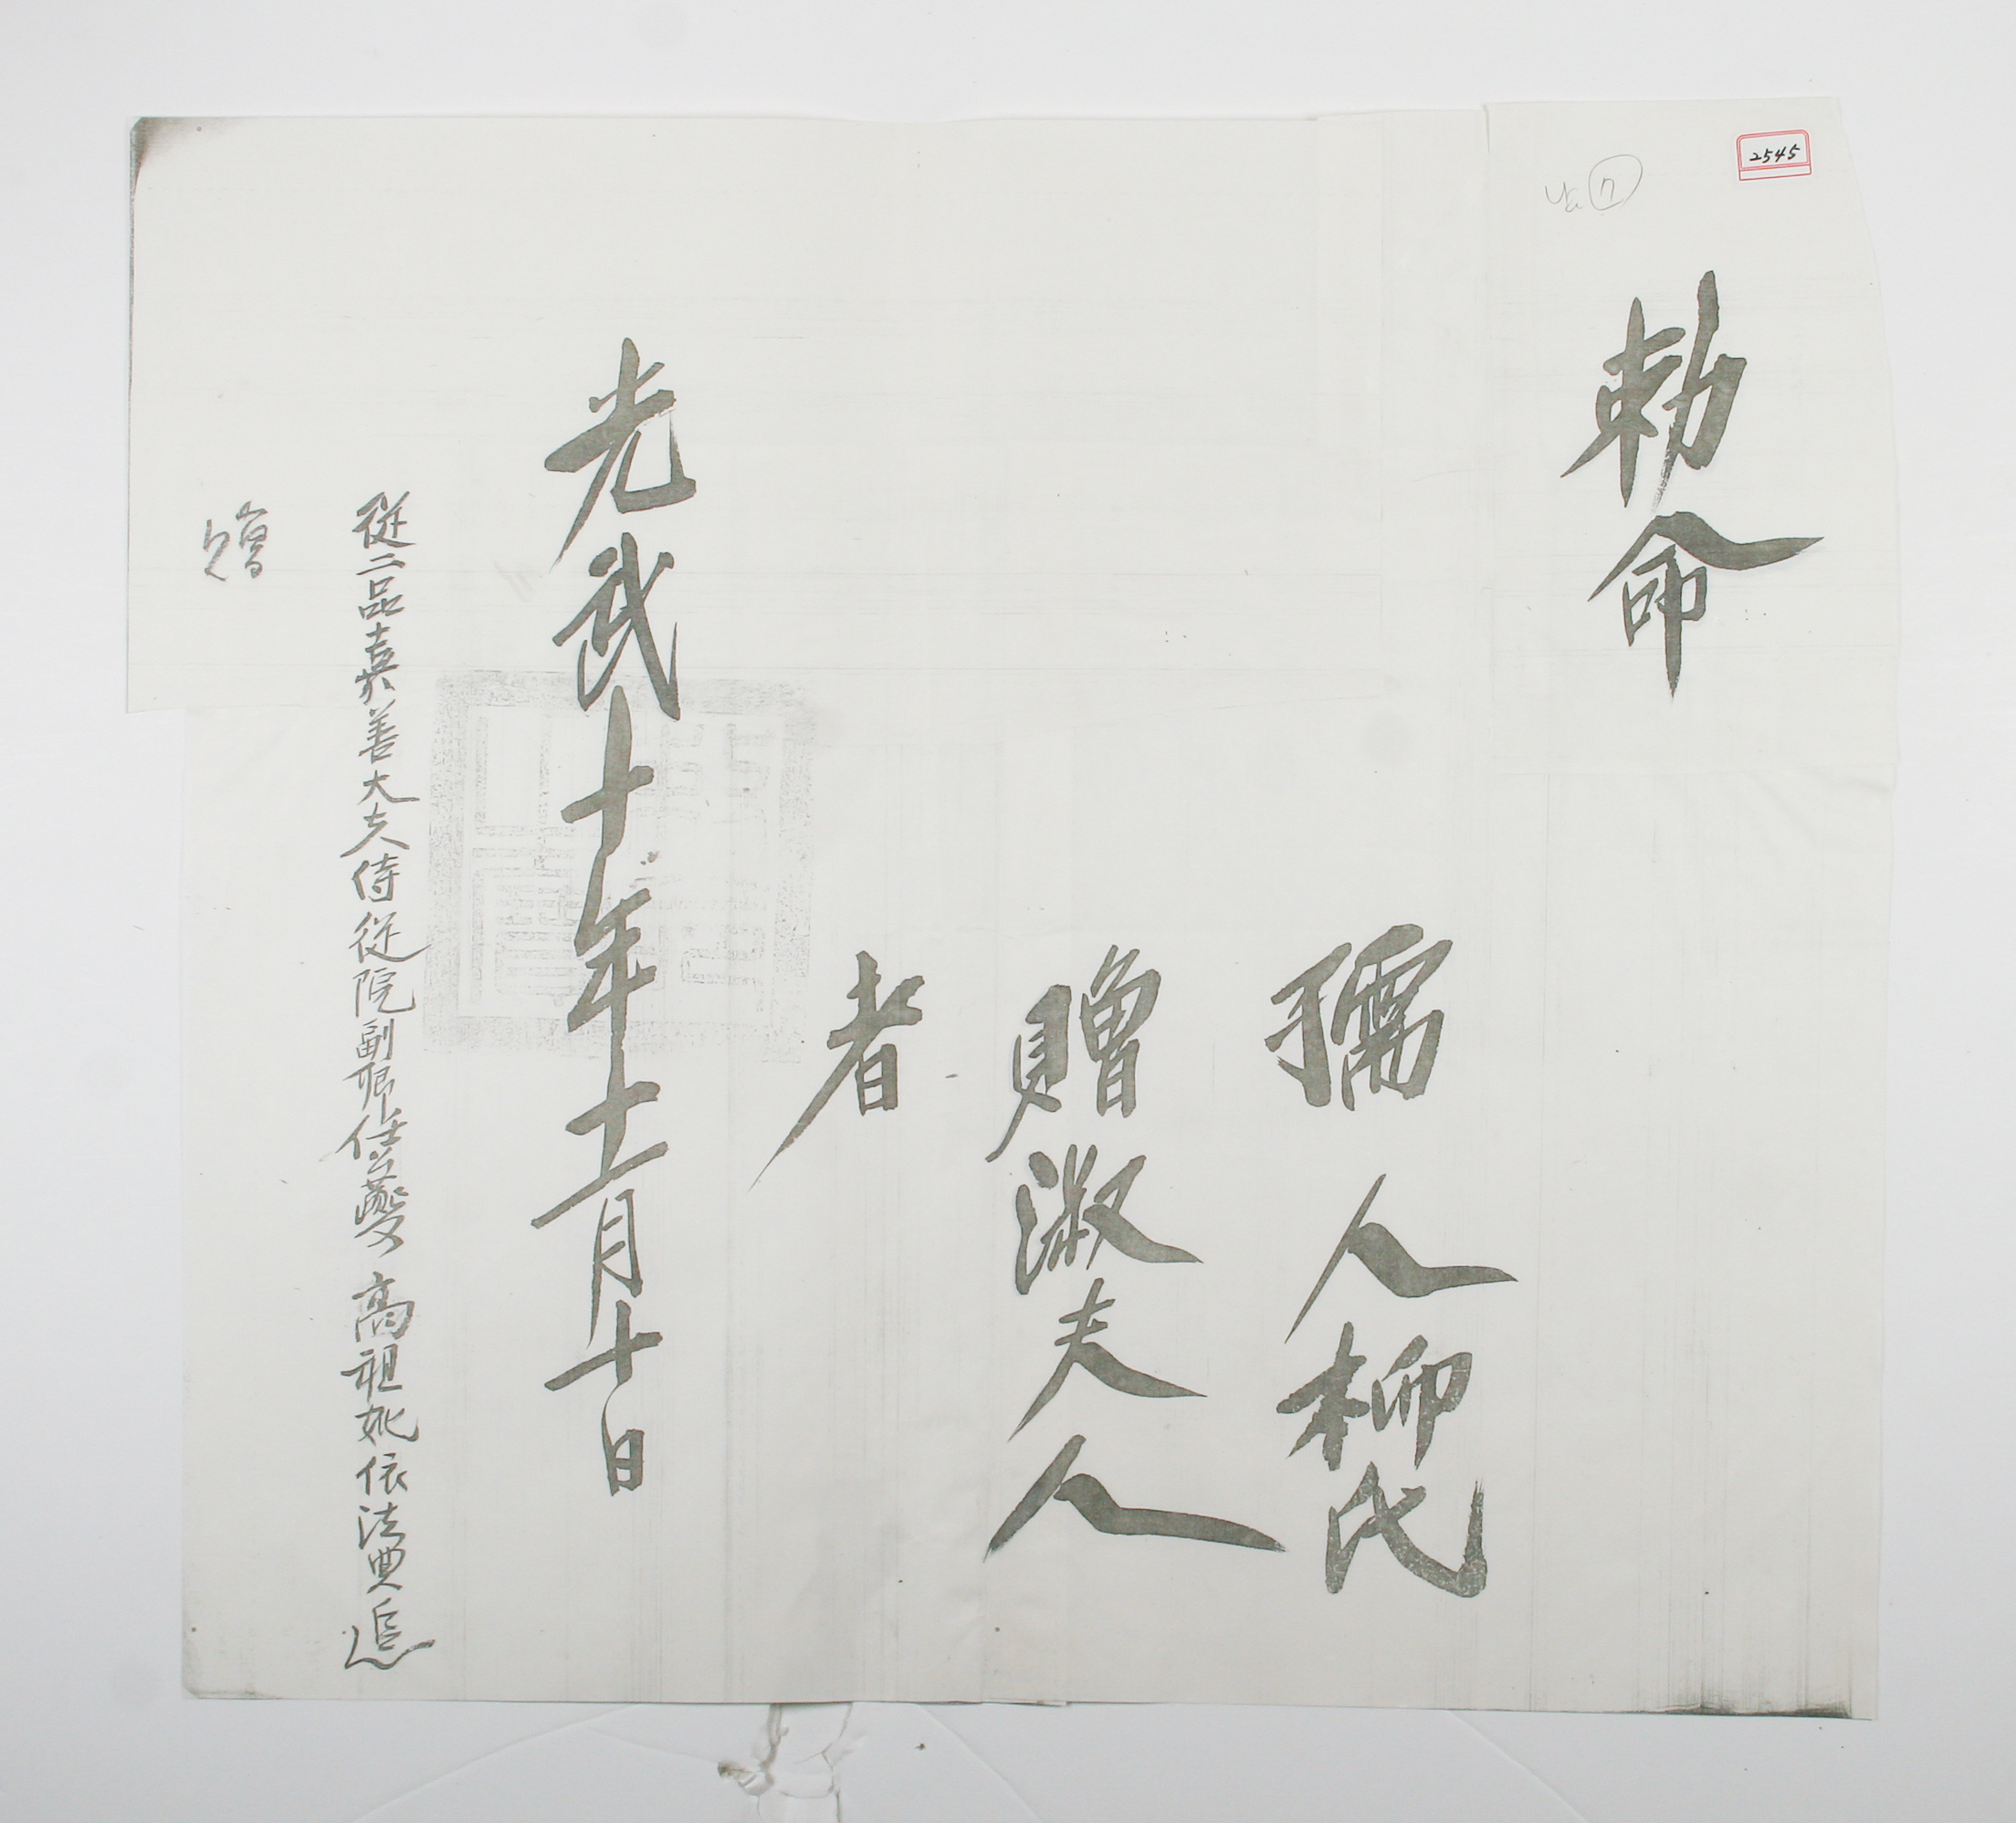 2545
勅命
孺人柳氏
贈淑夫人
者
光武十年十一月十日
從二品嘉善大夫侍從院副卿任 高祖妣依法典追
贈